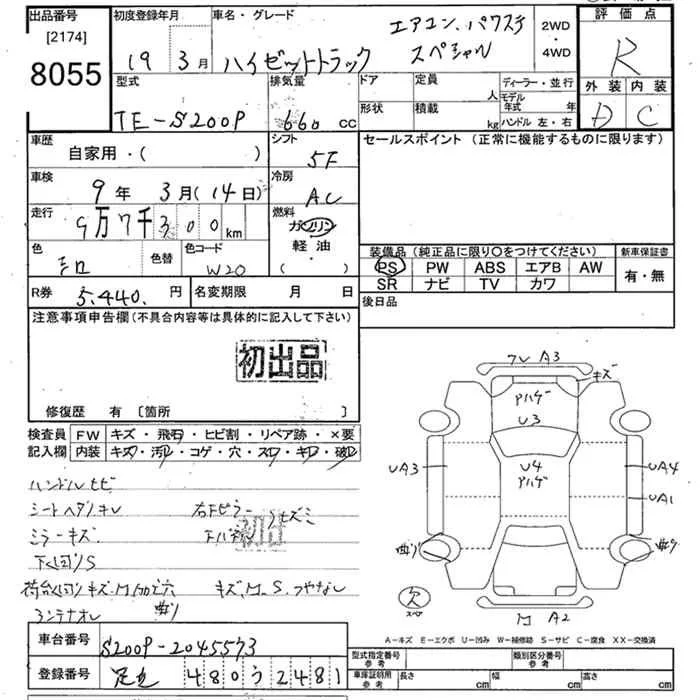 出品番号 初度登録年月 車名・グレード エアコン、パワステ 2WD 評価点
[2174] 19 3月 ハイゼットトラック スペシャル ・ R
8055 4WD
型式 排気量 ドア 定員 人 ディーラー・並行 外装 内装
TE-S200P 660 cc 形状 積載 kg モデル年式 年 D C
ハンドル 左・右
車歴 シフト セールスポイント (正常に機能するものに限ります)
自家用・( ) 5F
車検 冷房
9年 3月(14日) AC
走行 燃料
9万7千300km ガソリン
色 色替 色コード 軽油 装備品(純正品に限り○をつけてください) 新車保証書
W20 ( ・ ) PS PW ABS エアB AW 有・無
SR ナビ TV カワ
R券 5,440. 円 名変期限 月 日 後日品
注意事項申告欄(不具合内容等は具体的に記入して下さい)
初出品
修復歴 有 〔箇所 〕
検査員 FW キズ・飛石・ヒビ割・リペア跡・×要
記入欄 内装 キズ・汚レ・コゲ・穴・スレ・キレ・破レ
ハンドルヒビ
シートヘタリキレ
ミラーキズ
下回りS
フレ A3
キズ
アハゲ
U3
UA3 U4 UA4
アハゲ UA1
曲り 曲り
欠
スペア
M A2
A-キズ E-エクボ U-凹み W-補修跡 S-サビ C-腐食 XX-交換済
車台番号 S200P-2045573 型式指定番号 参考 類別区分番号 参考
登録番号 足立 480う2481 車庫証明用 参考 長さ cm 幅 cm 高さ cm